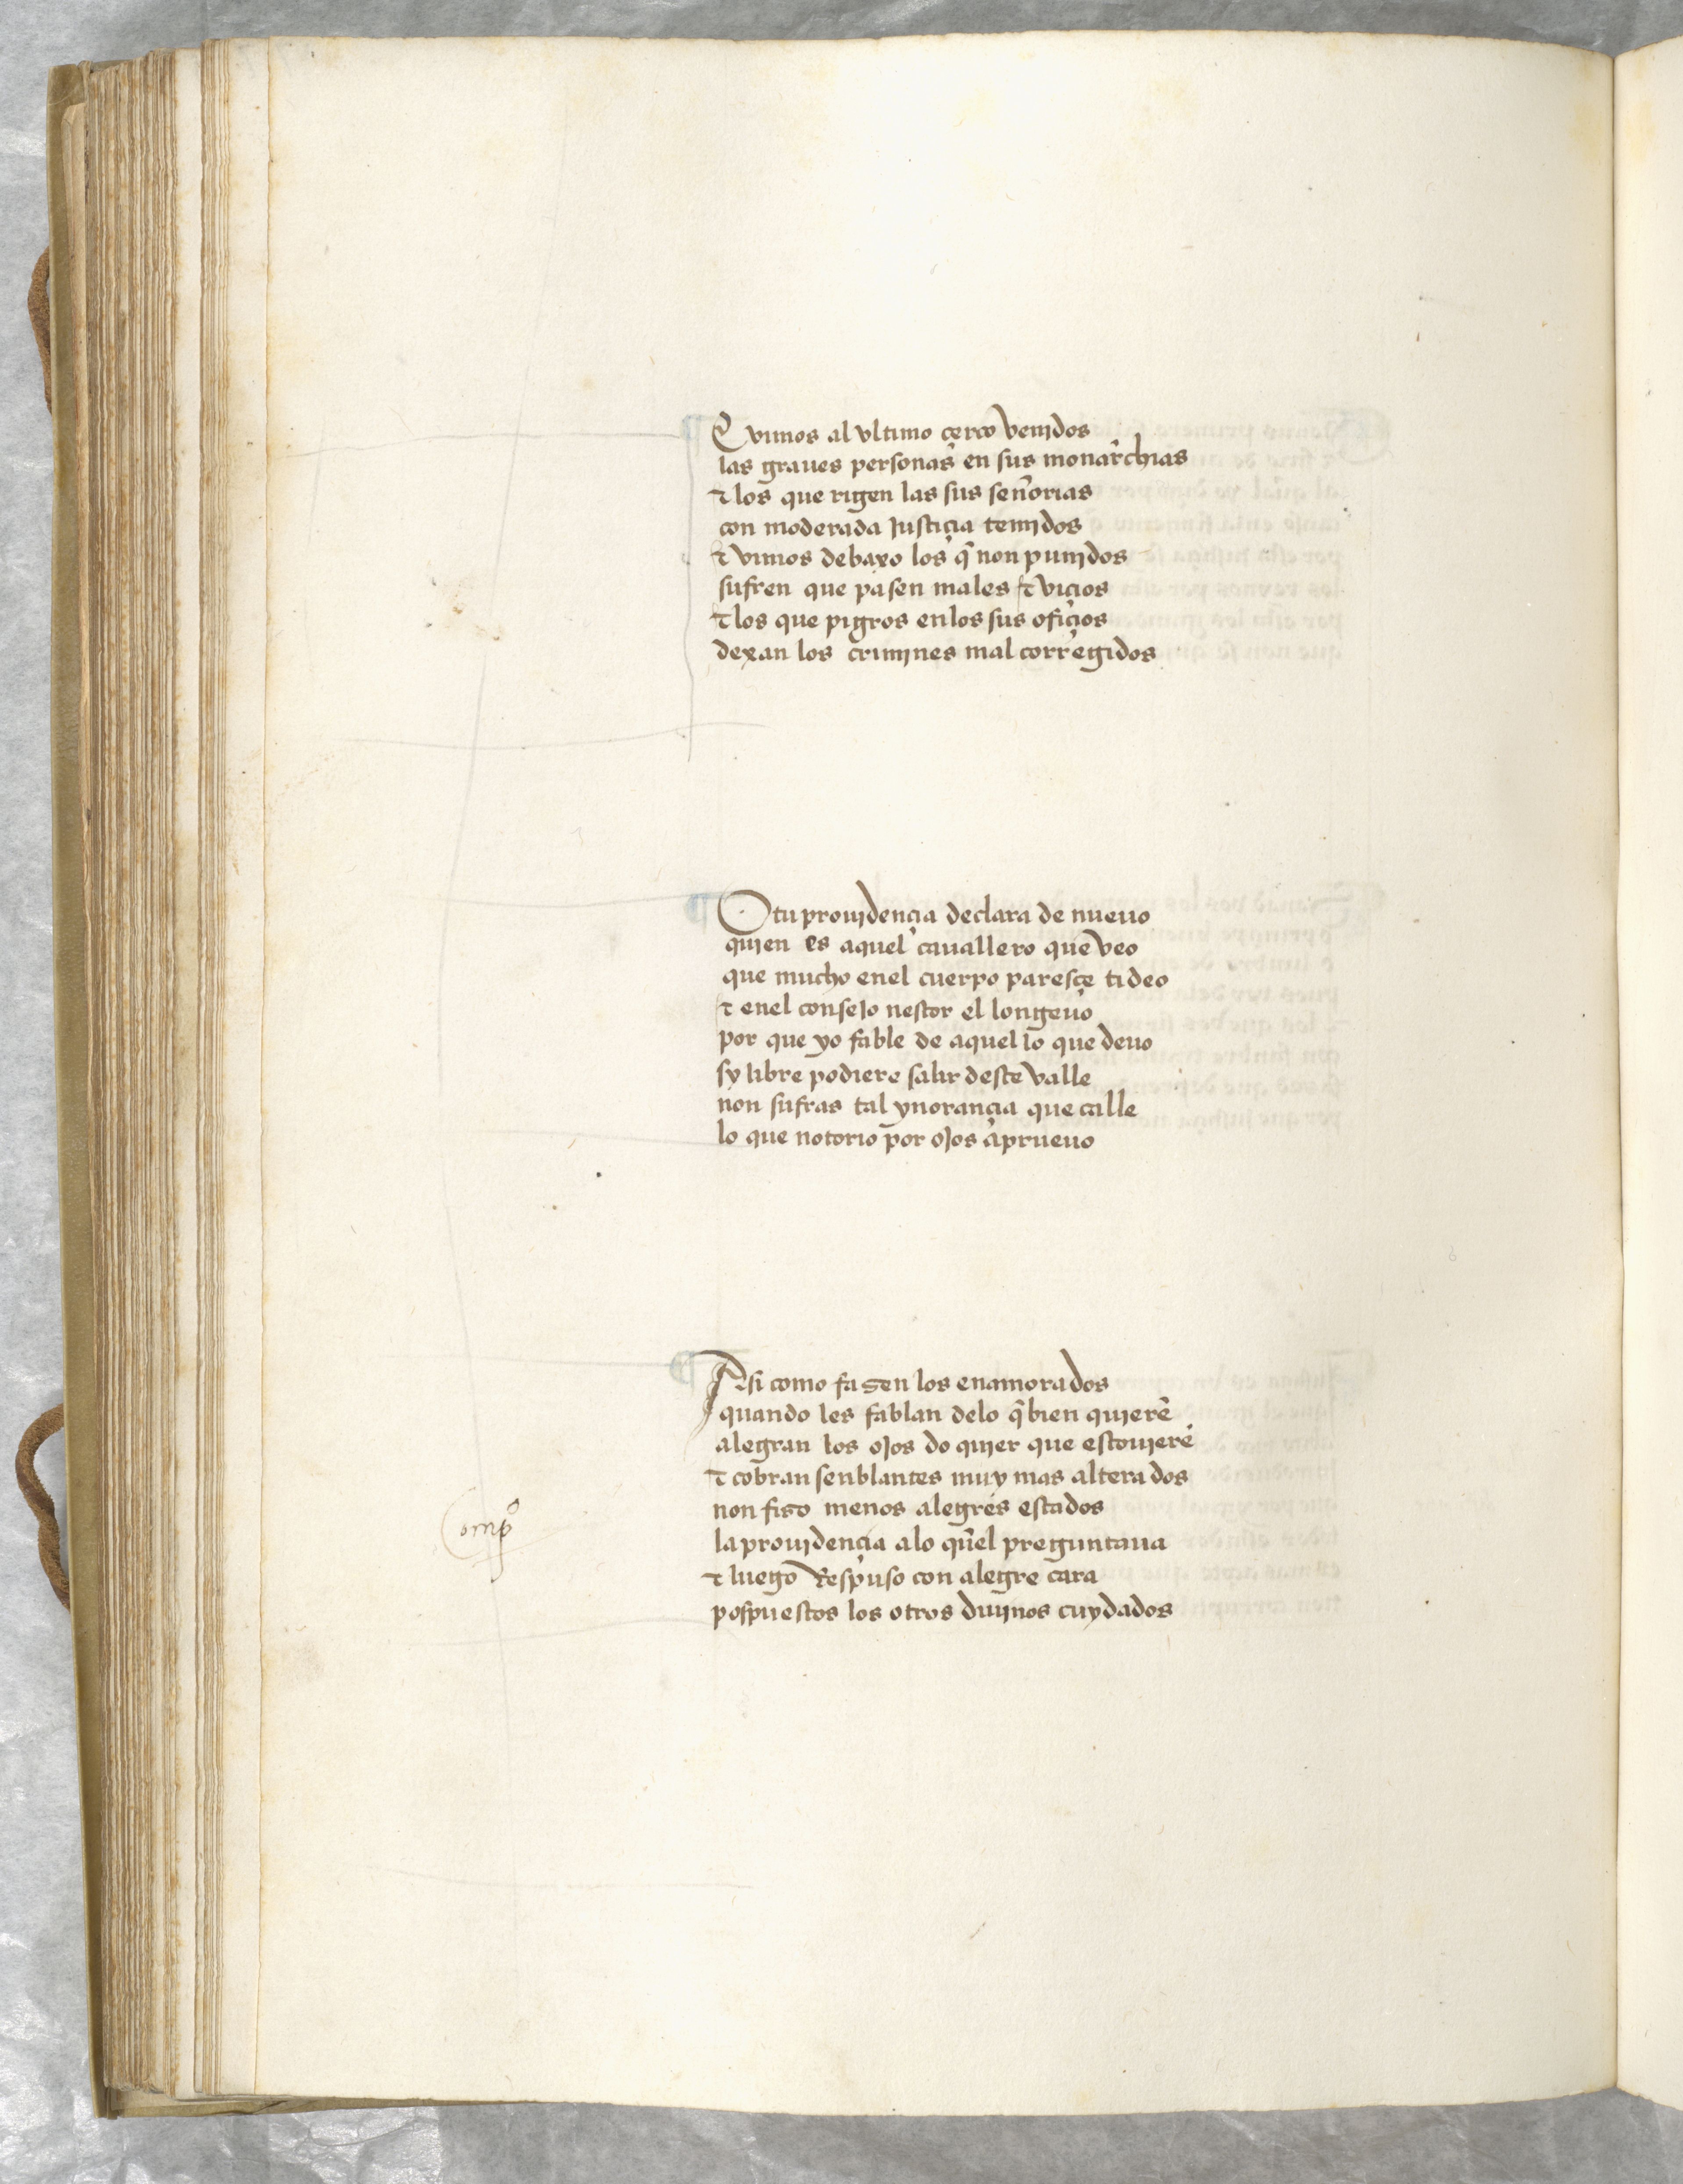 E vimos al vltimo çerco venidos
las graues personas en sus monarchias
τ los que rigen las sus señorias
con moderada Justiçia temidos
τ vimos debaxo los q̃ non punidos
sufren que pasen males τ viçios
τ los que pigros enlos sus ofiçios
dexan los crimines mal corregidos
O tu prouidençia declara de nueuo
quien es aquel cauallero que veo
que mucho enel cuerpo paresçe tideo
τ enel conseJo nestor el longeuo
por que yo fable de aquel lo que deuo
sy libre podiere salir deste valle
non sufras tal ynorançia que calle
lo que notorio por oJos aprueuo
Asi como fasen los enamorados
quando les fablan delo q̃ bien quierẽ
alegran los oJos do quier que estouierẽ
τ cobran senblantes muy mas alterados
non fiso menos alegres estados
la prouidençia alo qũel preguntaua
τ luego Respuso con alegre cara
pospuestos los otros diuinos cuydados
Compº